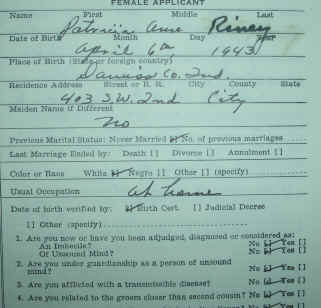 FEMALE APPLICANT
Name First Middle Last
Patricia Ann Riney
Date of Birth Month Day Year
April 6th 1943
Place of Birth (State or foreign country)
Daviess Co. Ind.
Residence Address Street or R. R. City County State
403 S.W. 2nd City
Maiden Name if Different
No
Previous Marital Status: Never Married [] No. of previous marriages
Last Marriage Ended by: Death [] Divorce [] Annulment []
Color or Race White [] Negro [] Other [] (specify)
Usual Occupation At home
Date of birth verified by: [] Birth Cert. [] Judicial Decree
[] Other (specify)
1. Are you now or have you been adjudged, diagnosed or considered as:
An Imbecile? No [] Yes []
Of Unsound Mind? No [] Yes []
2. Are you under guardianship as a person of unsound
mind? No [] Yes []
3. Are you afflicted with a transmissible disease? No [] Yes []
4. Are you related to the groom closer than second cousin? No [] Yes []